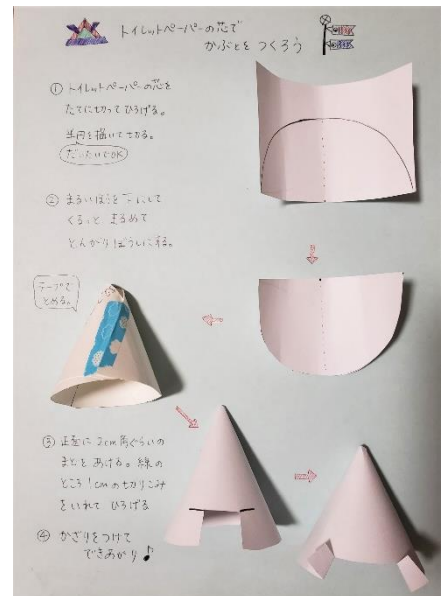 トイレットペーパーの芯で
かぶとを つくろう
① トイレットペーパーの芯を
たてに切って ひろげる。
半円を描いて きる。
だいたいでOK
② まるいほうを 下にして
くるっと まるめて
とんがりぼうしにする。
テープで
とめる。
③ 正面に 2cm角ぐらいの
まどを あける。線の
ところ 1cmの切りこみ
をいれて ひろげる
④ かざりをつけて
できあがり♪